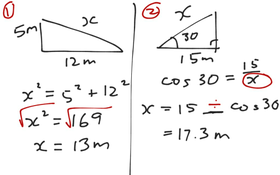 ① ②
5m x
12m
x² = 5² + 12²
√x² = √169
x = 13m
x
30
15m
cos30 = 15/x
x = 15 ÷ cos30
= 17.3m